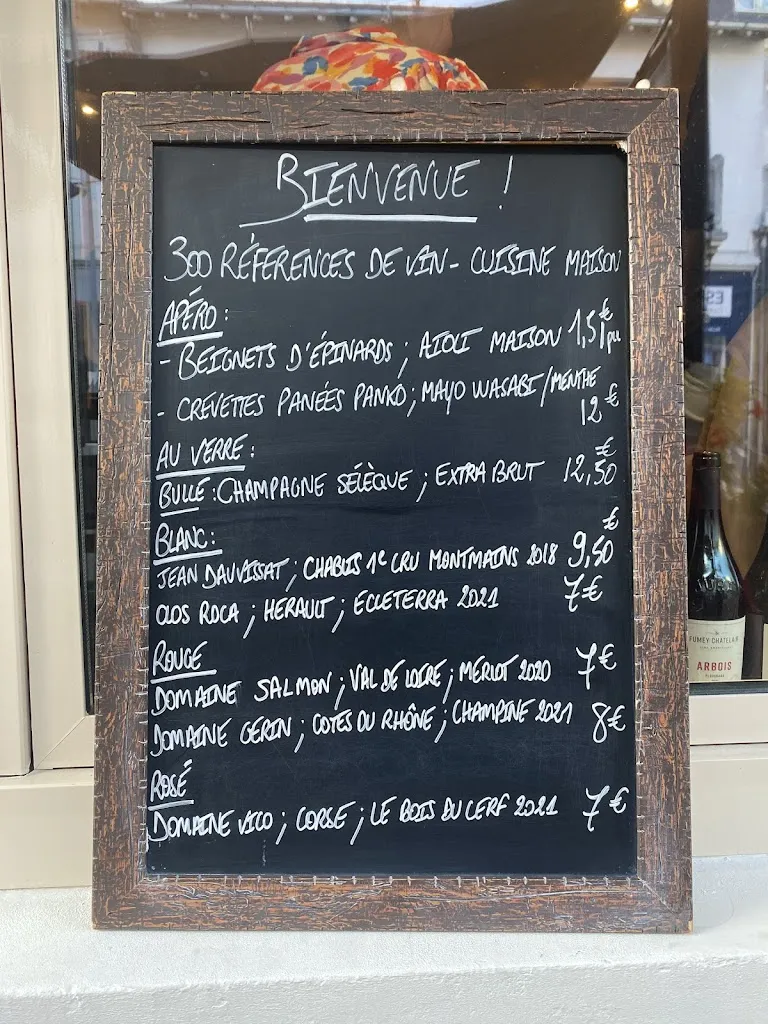 BIENVENUE !
300 RÉFERENCES DE VIN - CUISINE MAISON
APÉRO :
- BEIGNETS D'ÉPINARDS ; AIOLI MAISON 1,5€/pu
- CREVETTES PANÉES PANKO ; MAYO WASABI/MENTHE
12€
AU VERRE :
BULLE : CHAMPAGNE SÉLÈQUE ; EXTRA BRUT 12,50€
BLANC :
JEAN DAUVISSAT ; CHABLIS 1e CRU MONTMAINS 2018 9,50€
CLOS ROCA ; HERAULT ; ECLETERRA 2021 7€
ROUGE
DOMAINE SALMON ; VAL DE LOIRE ; MERLOT 2020 7€
DOMAINE GERIN ; COTES DU RHÔNE ; CHAMPINE 2021 8€
ROSÉ
DOMAINE VICO ; CORSE ; LE BOIS DU CERF 2021 7€
FUMEY-CHATELAIN
ARBOIS